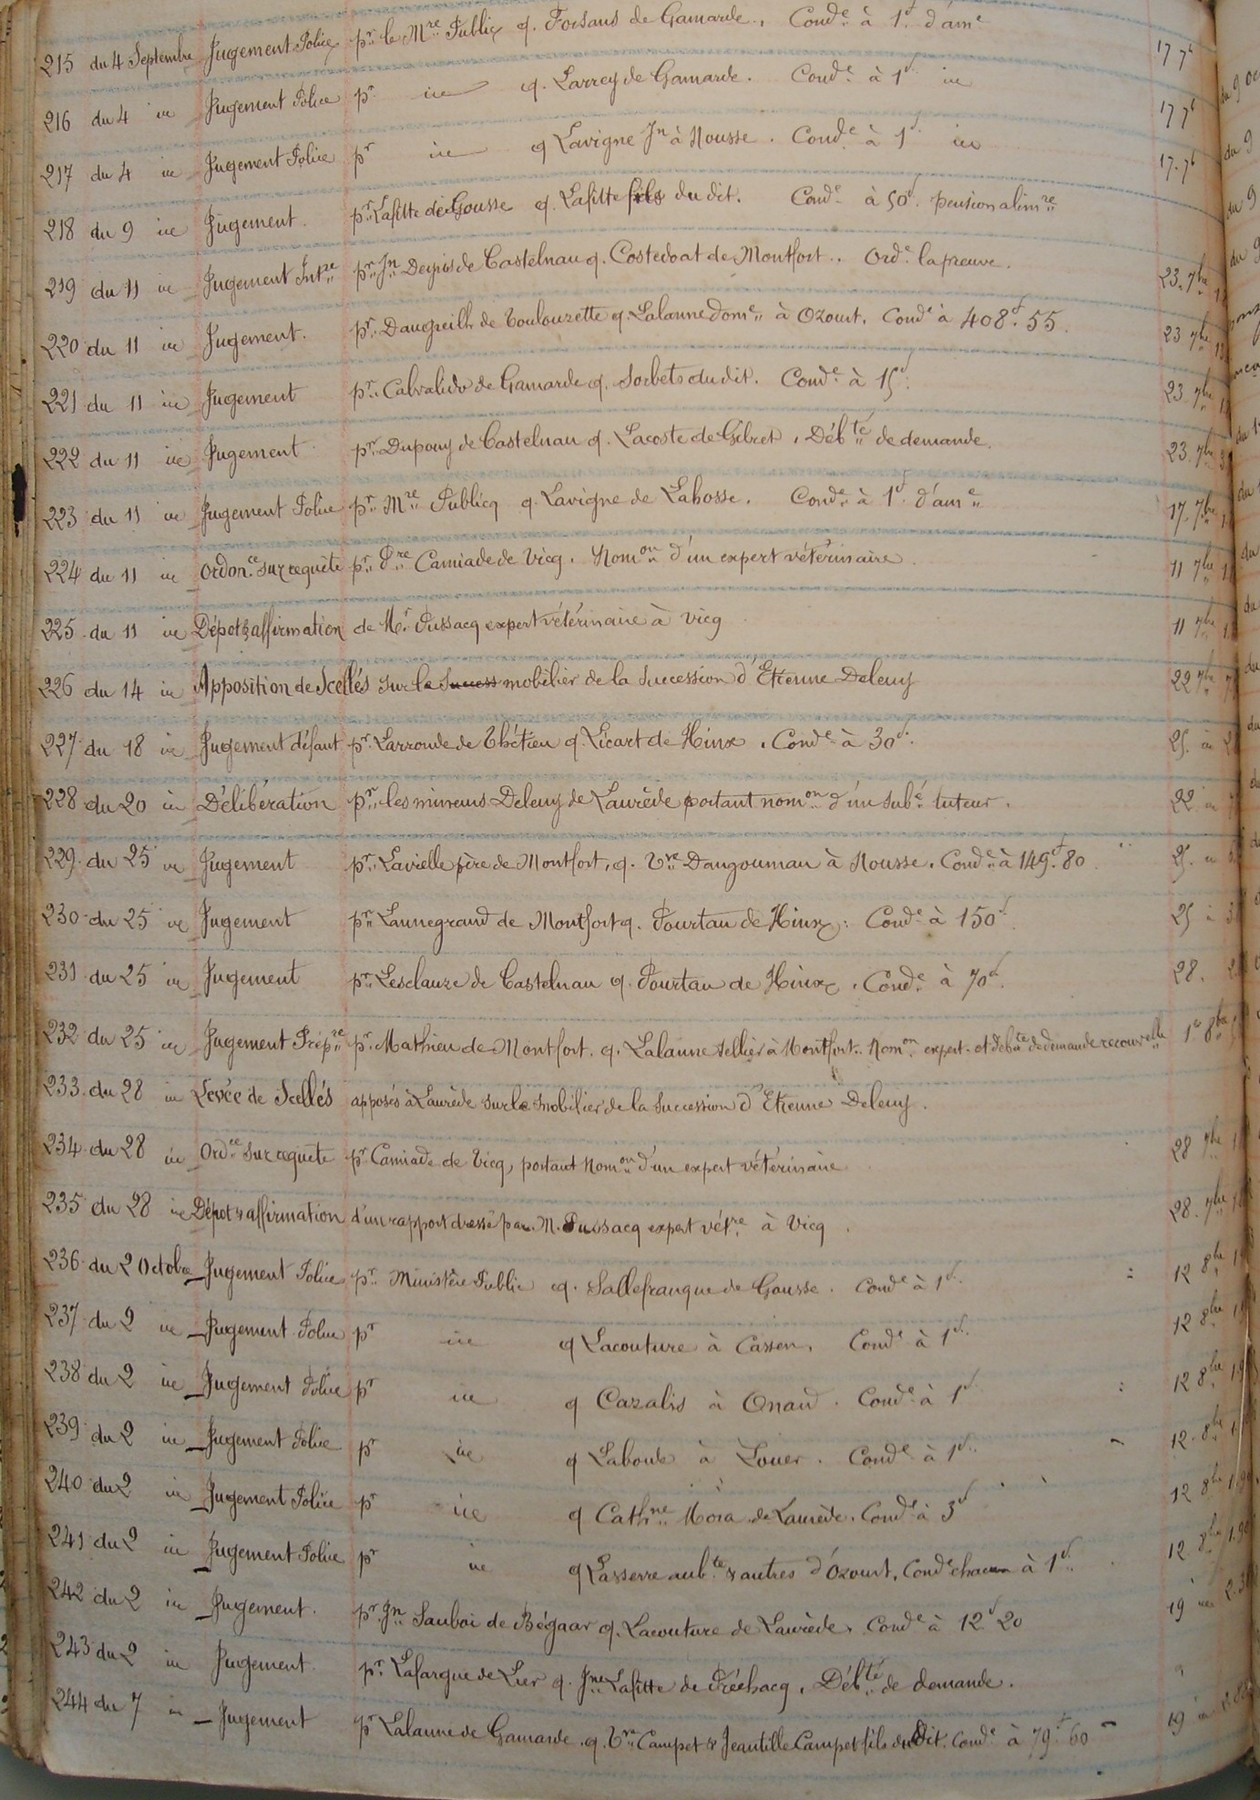 215 du 4 Septembre Jugement Police pr le Mre Public q. Forsans de Gamarde. Conde à 1f d'ame 17 7b
216 du 4 ie Jugement Police pr ie q. Larrey de Gamarde. Conde à 1f ie 17 7b
217 du 4 ie Jugement Police pr ie q Lavigne Jn à Nousse. Conde à 1f ie 17-7b
218 du 9 ie Jugement. pr Lafitte de Gousse q. Lafitte fils du dit. Conde à 50f. pension alimre
219 du 11 ie Jugement Intre pr Jn Deyris de Castelnau q. Costedoat de Montfort. Orde la preuve. 23. 7bre
220 du 11 ie Jugement. pr Daugreilh de Toulouzette q Lalanne dome à Ozourt. Conde à 408f. 55. 23 7bre
221 du 11 ie Jugement pr de Gamarde q. Sorbets du dit. Conde à 15f. 23. 7bre
222 du 11 ie Jugement pr Dupouy de Castelnau q. Lacoste de Gibret, Débté de demande. 23. 7bre
223 du 11 ie Jugement Police pr Mre Publicq q Lavigne de Lahosse. Conde à 1f d'ame 17. 7bre
224 du 11 ie Ordonce sur requête pr Pre Camiade de Vicq. Nomon d'un expert vétérinaire. 11 7bre
225 du 11 ie Dépot & affirmation de Mr Pussacq expert vétérinaire à Vicq 11 7bre
226 du 14 ie Apposition de Scellés sur le Success mobilier de la Succession d'Etienne Deleuy 22 7bre
227 du 18 ie Jugement défaut pr Larroude de Thétieu q Licart de Hinx. Conde à 30f. 25. ie
228 du 20 ie Délibération pr les mineurs Deleuy de Laurède portant nomon d'un subé tuteur. 22 ie
229 du 25 ie Jugement pr Lavielle père de Montfort, q. Vve Dangouman à Nousse. Conde à 149f. 80 25. ie
230 du 25 ie Jugement pr Lannegrand de Montfort q. Pourtau de Hinx. Conde à 150f. 25 ie
231 du 25 ie Jugement pr Lesclauze de Castelnau q. Pourtau de Hinx. Conde à 70f. 28.
232 du 25 ie Jugement Prépre pr Mathieu de Montfort. q. Lalanne sellier à Montfort. Nomon expert et débté de demande reconvelle 1er 8bre
233 du 28 ie Levée de Scellés apposés à Laurède sur le mobilier de la Succession d'Etienne Deleuy.
234 du 28 ie Ordce sur requête pr Camiade de Vicq, portant Nomon d'un expert vétérinaire 28 7bre
235 du 28 ie Dépot & affirmation d'un rapport dressé par M. Pussacq expert vétre à Vicq. 28. 7bre
236 du 2 Octobre Jugement Police pr Ministère Public q. Sallefranque de Gousse. Conde à 1f. 12 8bre
237 du 2 ie Jugement Police pr ie q Lacouture à Cassen. Conde à 1f. 12 8bre
238 du 2 ie Jugement Police pr ie q Cazalis à Onard. Conde à 1f 12 8bre
239 du 2 ie Jugement Police pr ie q Laborde à Louer. Conde à 1f. 12. 8bre
240 du 2 ie Jugement Police pr ie q Cathne Mora de Laurède. Conde à 3f 12 8bre
241 du 2 ie Jugement Police pr ie q Lasserre aubte & autres d'Ozourt. Conde chacun à 1f. 12 8bre
242 du 2 ie Jugement. pr Jn Sauboi de Bégaar q. Lacouture de Laurède. Conde à 12f 20 19 ie
243 du 2 ie Jugement. pr Lafargue de Lier q. Jne Lafitte de Préchacq. Débté de demande.
244 du 7 ie Jugement pr Lalanne de Gamarde. q. Vve Campet & Jeantille Campet fils du Dit. Conde à 79f. 60 19 ie